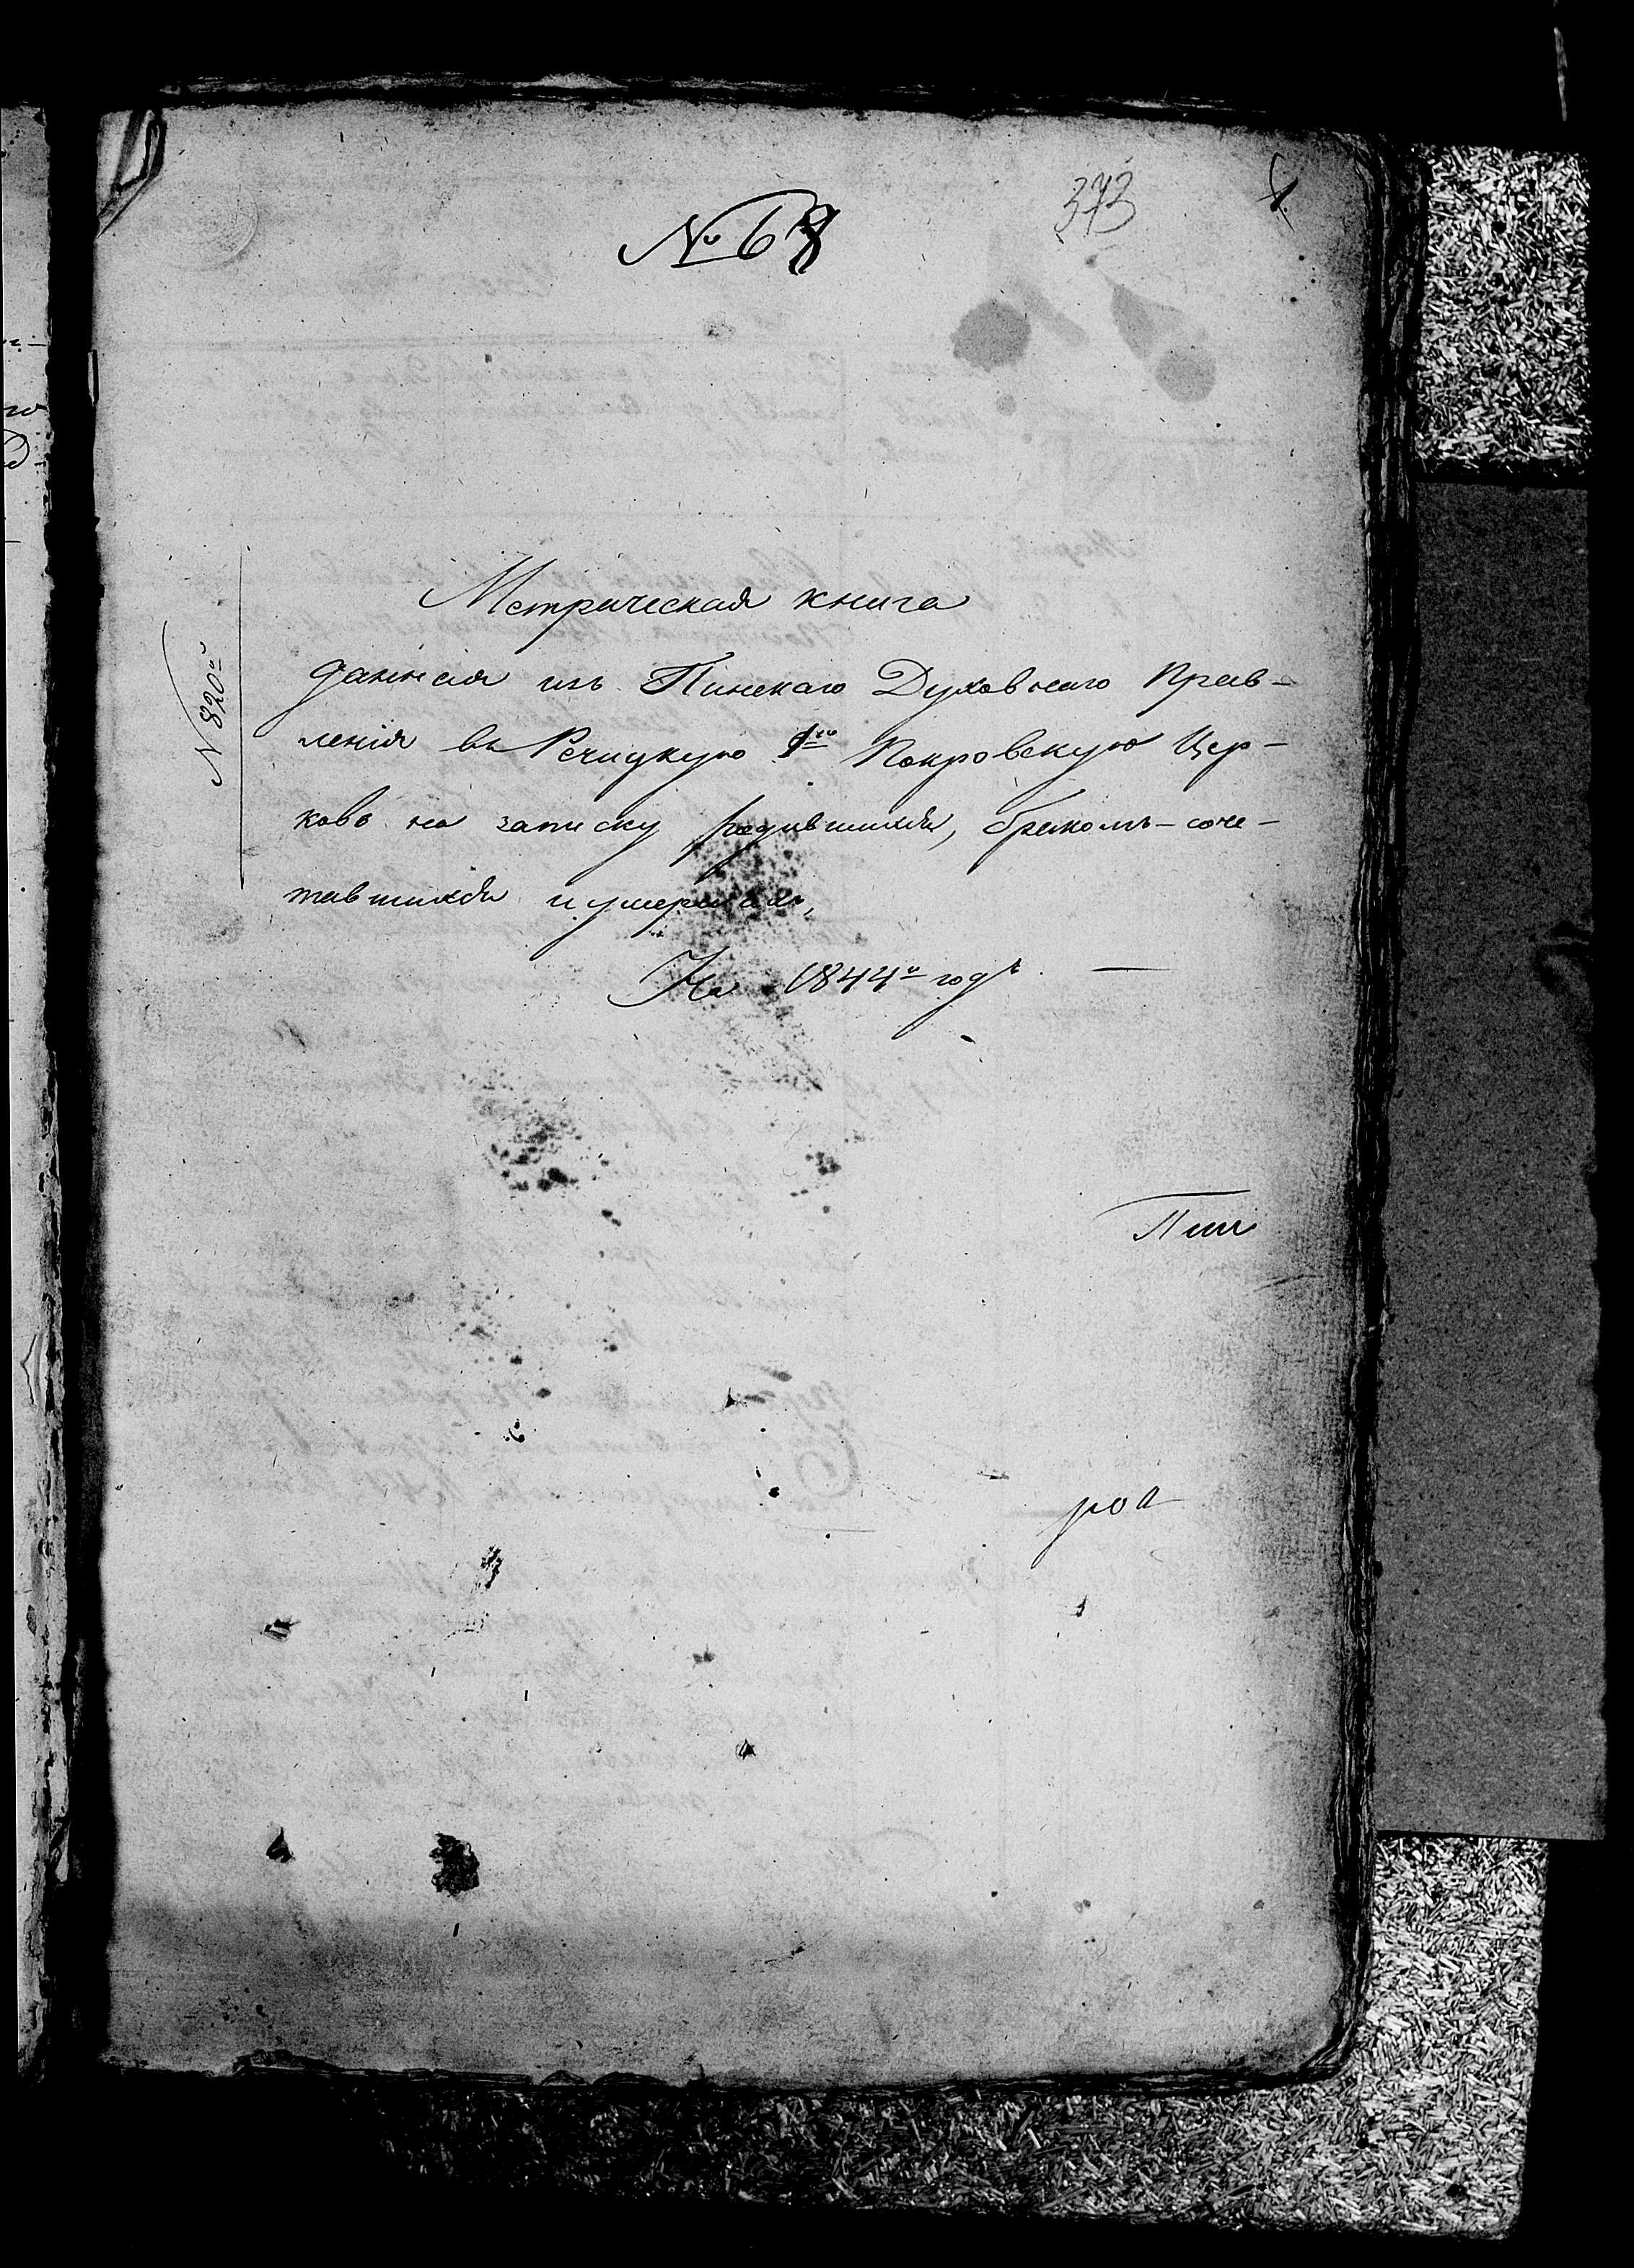 № 68
373
Метрическая книга
данная изъ Пинскаго Духовнаго Прав-
ленія въ Речицкую 1ю Покровскую Цер-
ковь на записку родившихся, бракомъ-соче-
тавшихся и умершихъ,
На 1844й годъ. —
N 820й
Пин
роа